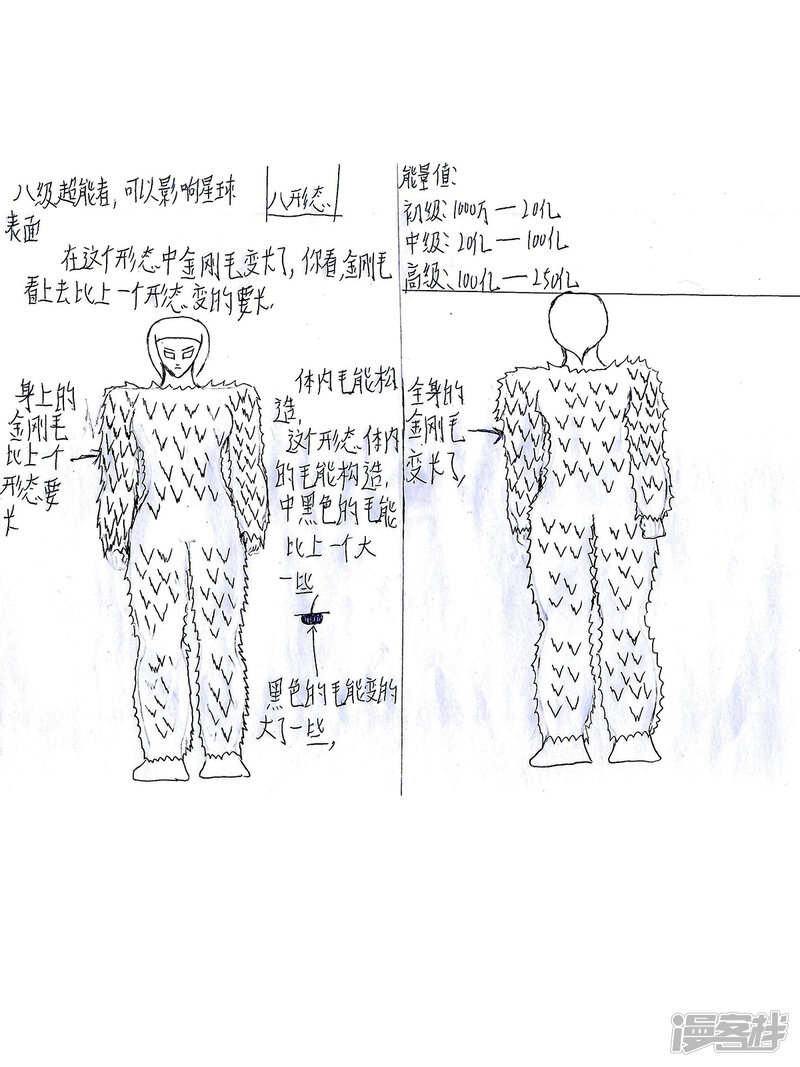 八级超能者，可以影响星球
表面
八形态
在这个形态中金刚毛变长了，你看，金刚毛
看上去比上一个形态变的要长。
身上的
金刚毛
比上个
形态要
长
体内毛能构
造，
这个形态体内
的毛能构造，
中黑色的毛能
比上一个大
一些
黑色的毛能变的
大了一些，
能量值：
初级：1000万—20亿
中级：20亿—100亿
高级：100亿—250亿
全身的
金刚毛
变长了，
漫客栈